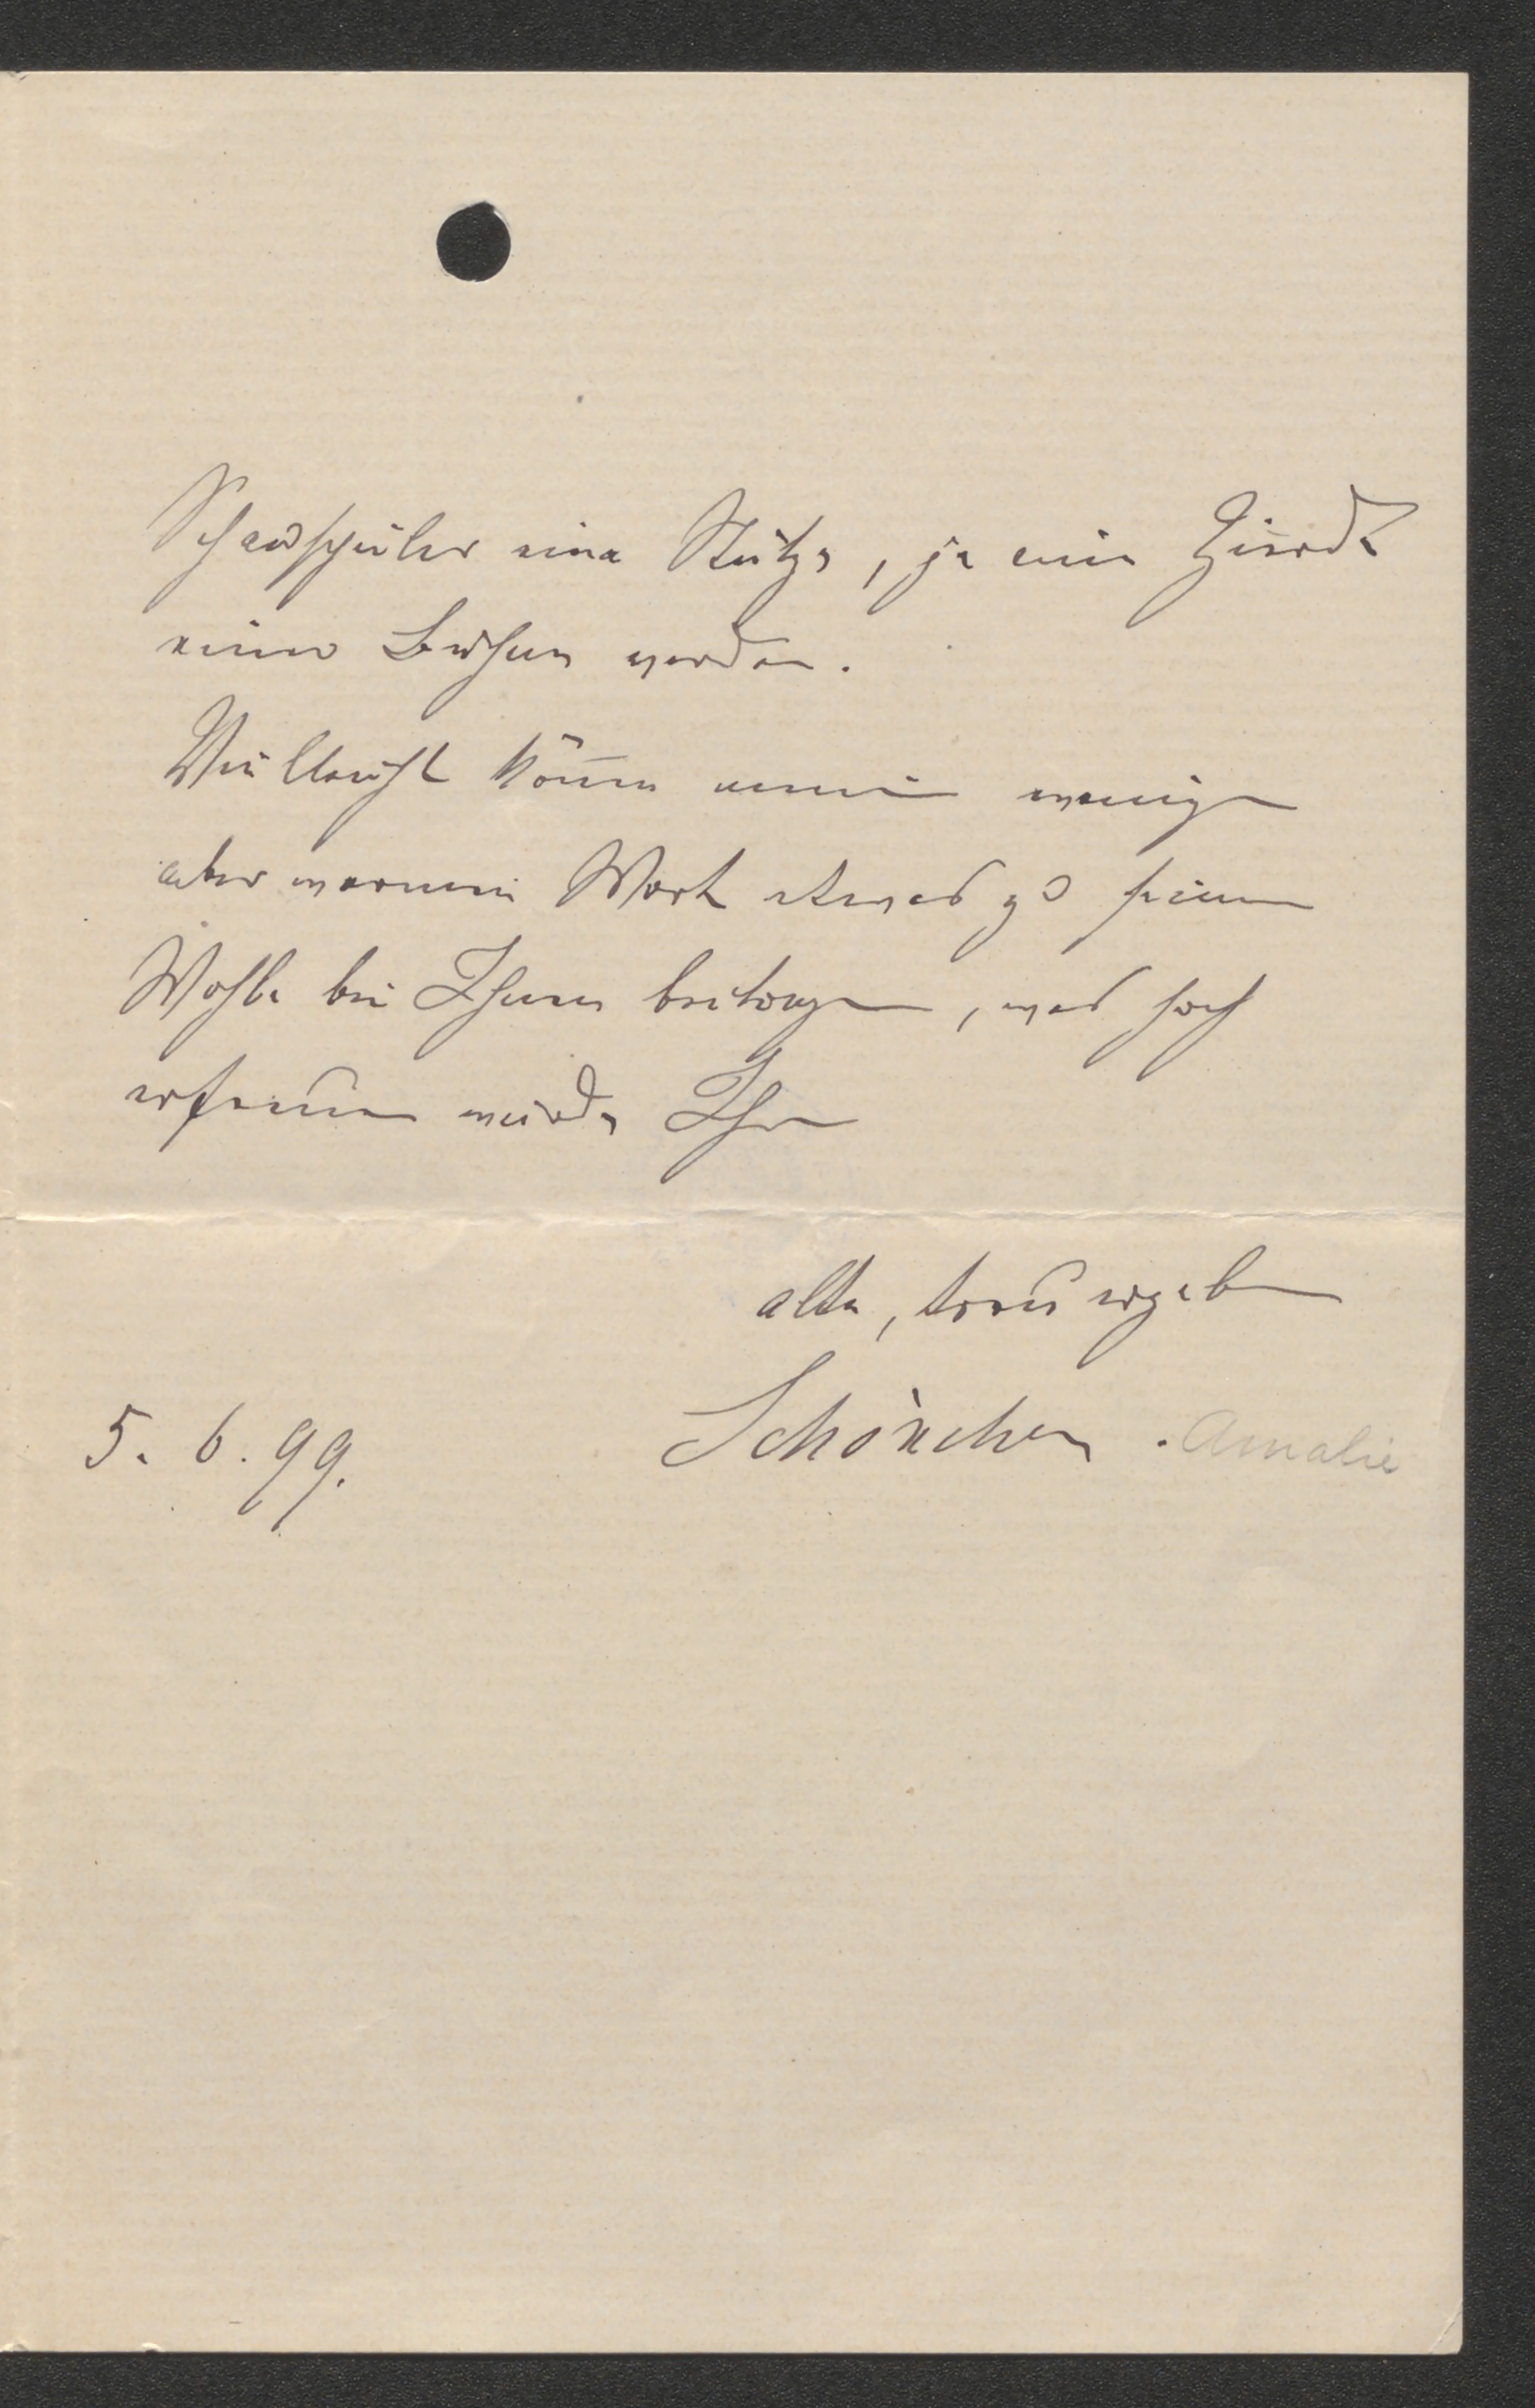 Schauspieler eine Stütze, ja eine Zierde
einer Bühne werden.
Vielleicht können meine wenigen
aber warmen Worte etwas zu seinem
Wohle bei Ihnen beitragen, was hoch
erfreuen würde Ihre
alte, treu ergebene
5. 6. 99. Schönchen. Amalie